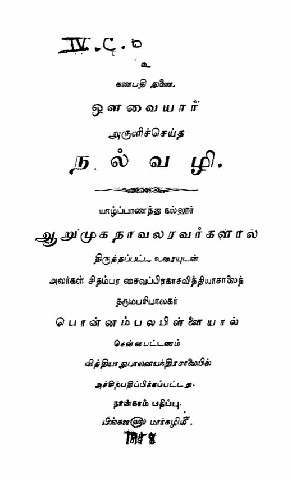 IV. C. 5
உ
கணபதி துணை.
ஔவையார்
அருளிச்செய்த
நல்வழி.
யாழ்ப்பாணத்து நல்லூர்
ஆறுமுகநாவலரவர்களால்
திருத்தப்பட்ட உரையுடன்
அவர்கள் சிதம்பர சைவப்பிரகாசவித்தியாசாலைத்
தருமபரிபாலகர்
பொன்னம்பலபிள்ளையால்
சென்னபட்டணம்
வித்தியாநுபாலனயந்திரசாலையில்
அச்சிற்பதிப்பிக்கப்பட்டது.
நான்காம் பதிப்பு.
பிங்கள௵ மார்கழி௴.